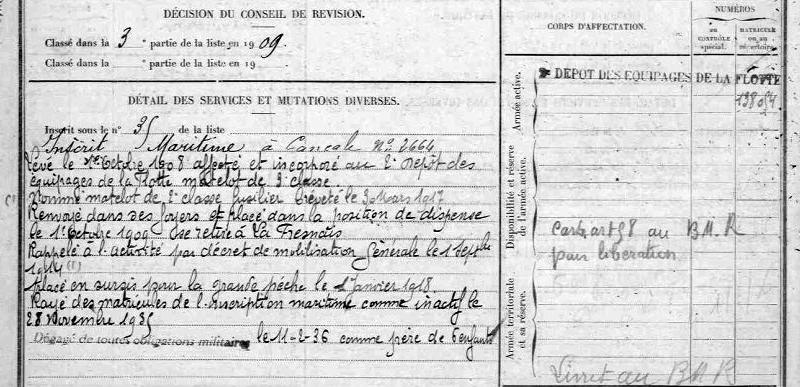 DÉCISION DU CONSEIL DE REVISION.
Classé dans la 3 partie de la liste en 1909.
Classé dans la partie de la liste en 19
DÉTAIL DES SERVICES ET MUTATIONS DIVERSES.
Inscrit sous le n° 35 de la liste
Inscrit Maritime à Cancale N° 2664
Levé le 1er Octbre 1908 affecté et incorporé au 2e Dépôt des
équipages de la Flotte matelot de 3e classe
Nommé matelot de 2e classe fusilier breveté le 3 Mars 1917
Renvoyé dans ses foyers et placé dans la position de dispense
le 1er Octobre 1909 se retire à La Fresnais
Rappelé à l'activité par décret de mobilisation Générale le 1 Septbre
1914 (1)
placé en sursis pour la grande pêche le 1 Janvier 1918.
Rayé des matricules de l'inscription maritime comme inactif le
28 Novembre 1935
Dégagé de toutes obligations militaires le 11-2-36 comme père de 6 enfants
CORPS D'AFFECTATION.
NUMÉROS
au CONTRÔLE spécial.
MATRICULE ou au répertoire.
Armée active.
DEPOT DES EQUIPAGES DE LA FLOTTE
13804
Disponibilité et réserve de l'armée active.
cart art 58 au B.M.R
pour libération
Armée territoriale et sa réserve.
Livret au B M R